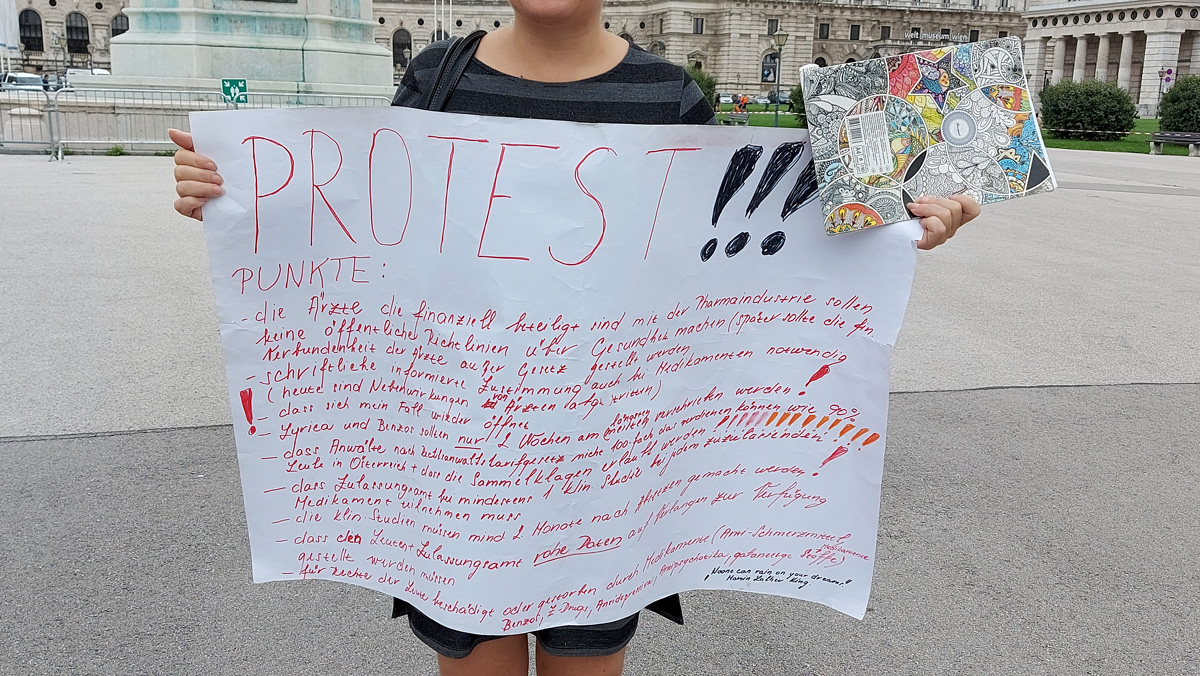 welt museum wien
PROTEST!!!
PUNKTE:
- die Ärzte die finanziell beteiligt sind mit der Pharmaindustrie sollen
keine öffentliche Richtlinien über Gesundheit machen (später sollte die fin.
Verbundenheit der Ärzte außer Gesetz gestellt werden
- schriftliche informierte Zustimmung auch bei Medikamenten notwendig
(heute sind Nebenwirkungen von Ärzten abgestritten)
- dass sich mein Fall wieder öffnet
! - Lyrica und Benzos sollen nur 2 Wochen am längsten verschrieben werden!
- dass Anwälte nach Rechtsanwaltstarifgesetz nicht 100-fach das verdienen können wie 90%
Leute in Österreich + dass die Sammelklagen erlaubt werden!
- dass Zulassungsamt bei mindestens 1 klin. Studie bei jedem zuzulassenden
Medikament teilnehmen muss
- die klin. Studien müssen mind 2 Monate nach Absetzen gemacht werden!
- dass den Leuten + Zulassungsamt rohe Daten auf Verlangen zur Verfügung
gestellt werden müssen
- für Rechte der Leute beschädigt oder gestorben durch Medikamente (Anti-Schmerzmittel,
Benzos, Z-Drugs, Antidepressiva, Antipsychotika,
Noone can rain on your dream,!
Martin Luther King